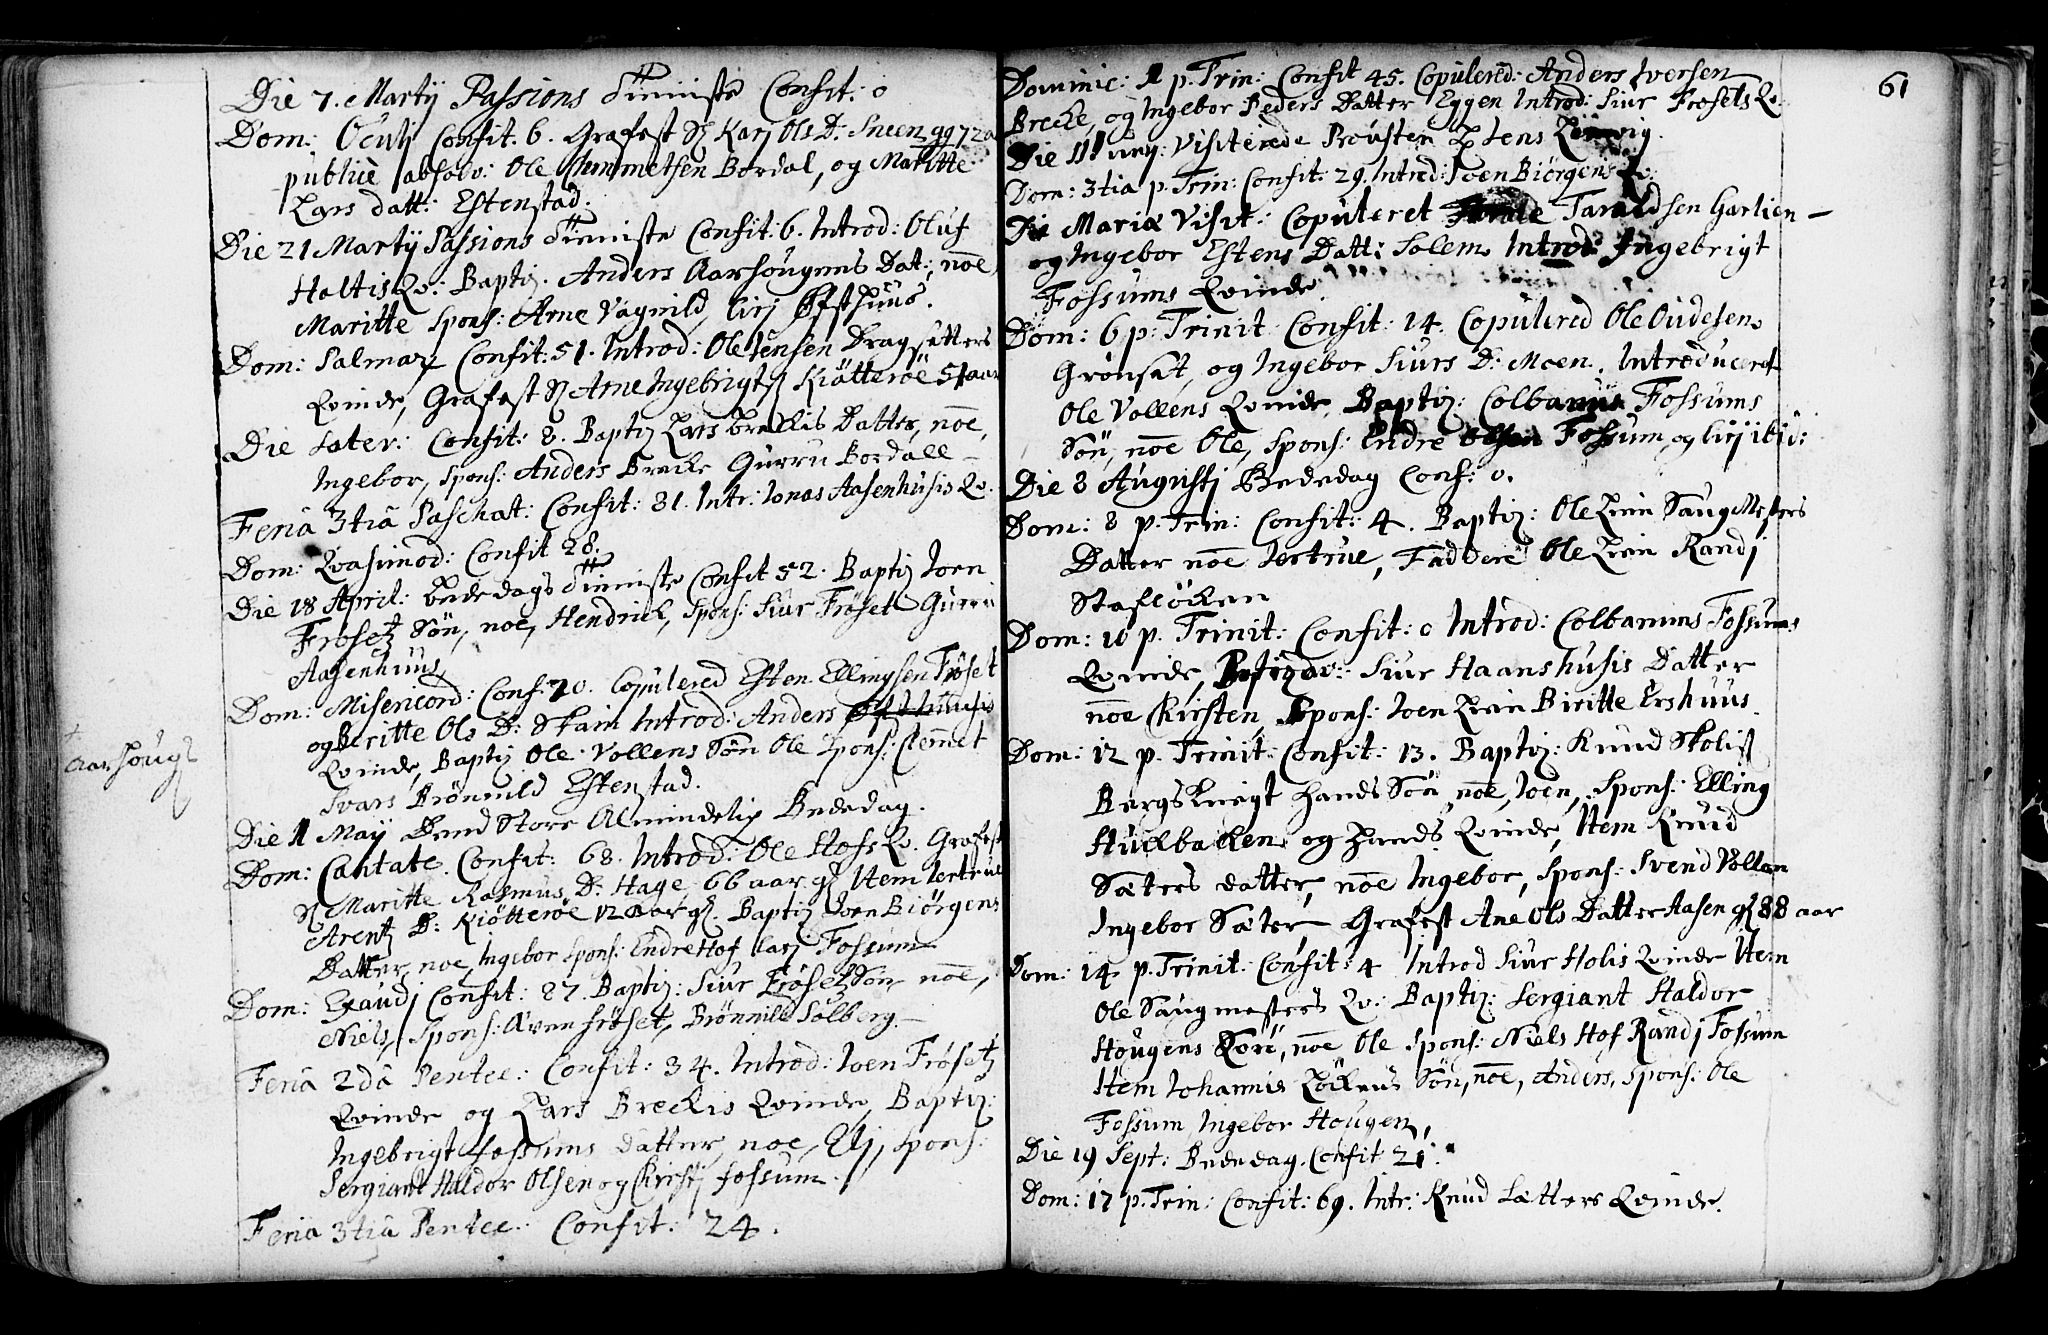 Die 7. Martij Passions Tienniste Confit: 0
Dom: Oculi Confit. 6. Grafest Karj Ols D: Sneen 72 a
publicè absolv: Ole Clemmetsen Bordal, og Maritte
Lars datt: Estenstad.
Die 21 Martij Passions Tienniste Confit: 6. Introd: Oluf
Holtis Qv: Baptiz. Anders Aarhougens Dat: noe
Maritte Spons: Arne Vagnild, Sirj Østhuus.
Dom: Palmar Confit: 51. Introd: Ole Jensen Dragsetters
Qvinde, Grafest Arne Ingebrigts Kiötteröe 51 aar
Die Vater: Confit: 8. Baptiz Lars Breckis Datter, noe,
Ingebor, Spons: Anders Brecke Gurru Bordall
Feria 3tiâ Paschat: Confit: 81. Intr: Jonas Aasenhusis Qv.
Dom: Qvasimod: Confit 28.
Die 18 April: Bededags Tienniste Confit 52. Baptiz Joen
Frösetz Sön, noe, Hendrich, Spons: Siur Fröset Gurru
Aasenhuus,
Dom: Misericord: Conf: 70. Copulered Esten Ellingsen Fröset
og Beritte Ols D: Skain Introd: Anders
Aarhougs
Qvinde, Baptiz Ole Vollens Sön Ole Spons: Clemet
Svars Brönnild Estenstad.
Die 11 Maij Dend Store Almindelig Bededag.
Dom: Cantate. Confit: 68. Introd: Ole Hofs Qv. Grafest
Maritte Rasmus D: Hage 66 aar gl Item Jertrue
Arentz D: Kiötteröe 12 aar gl. Baptiz Joen Biörgens
Datter noe, Ingebor Spons: Endre Hof Karj Fossum
Dom: Exaudj Confit: 87. Baptiz: Siur Frösetz Sön noe,
Niels, Spons: Even Fröset, Brönnild Solberg.
Feriâ 2dâ Pentec: Confit: 34. Introd: Joen Frösetz
Qvinde og Lars Breckis Qvinde, Baptiz:
Ingebrigt Fossums datter, noe, Elj, Spons:
Sergiant Haldor Olsen og Kirstj Fossum.
Feria 3tiâ Pentec: Confit: 24.
61
Dominic: 1 p. Trin: Confit 45. Copulered: Anders Iversen
Brecke, og Ingebor Peders Datter Eggen Introd: Siur Frosets Qv.
Die 11 Junij: Visiterede Provsten Jens
Dom: 3tia p. Trin: Confit: 29. Introd: Joen Biörgens Qv:
Die Mariæ Visit: Copuleret Taraldsen Garlien
og Ingebor Estens Datt: Solem Introd: Ingebrigt
Fossums Qvinde.
Dom: 6 p: Trinit Confit: 14. Copulered Ole Oudesen
Grönset, og Ingebor Siurs D: Moen. Introduceret
Ole Vollens Qvinde. Baptiz: Colbanus Fossums
Sön, noe Ole, Spons: Endre Olsen Fossum, og Sirj ibid:
Die 8 Augustj Bededag Conf: 0.
Dom: 8 p. Trin: Confit: 4. Baptiz: Ole Lien Saug Mesters
Datter noe Jertrue, Faddere Ole Lien Randj
Staflöcken
Dom: 10 p. Trinit: Confit: 0 Introd: Colbanuns Fossums
Qvinde, Siur Haanshusis Datter
noe Kirsten, Spons: Joen Lien Biritte Ershuus.
Dom: 12 p. Trinit: Confit: 13. Baptiz: Knud Skolis
Bergsknegt hands Sön, noe, Joen, Spons: Elling
Huckbaken og hands Qvinde, Item Knud
Sæters datter, noe Ingebor, Spons: Svend Vollan
Ingebor Sæter, Grafest Ane Ols Datter Aasen gl 88 aar
Dom: 14 p. Trinit: Confit: 4 Introd Siur Holis Qvinde Item
Ole Saugmesters Qv: Baptiz: Sergiant Haldor
Hougens Sön, noe Ole Spons: Niels Hof Randj Fossum
Item Johannis Löckens Sön, noe, Anders, Spons: Ole
Fossum, Ingebor Hougen,
Die 19 Sept: Bededag. Confit 21.
Dom: 17 p. Trin: Confit: 69. Intr: Knud Sætters Qvinde.